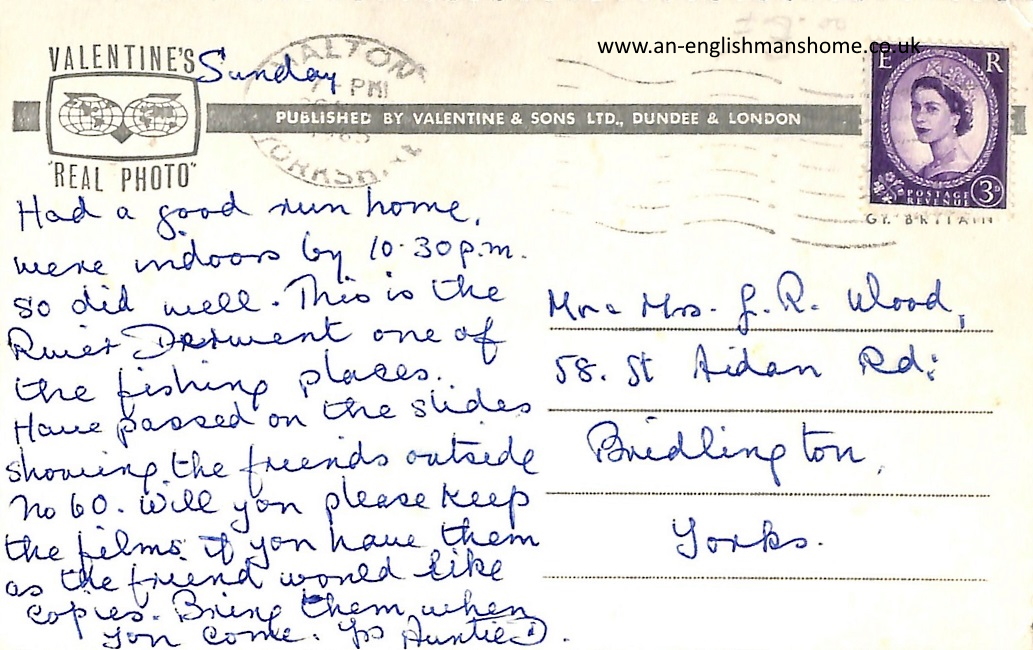 www.an-englishmanshome.co.uk
VALENTINE'S
"REAL PHOTO"
MALTON
PM
YORKSH
PUBLISHED BY VALENTINE & SONS LTD., DUNDEE & LONDON
E R
POSTAGE
REVENUE
3D
GT. BRITAIN
Sunday
Had a good run home,
were indoors by 10.30p.m.
so did well. This is the
River Derwent one of
the fishing places.
Have passed on the slides
showing the friends outside
No 60. Will you please keep
the films if you have them
as the friend would like
copies. Bring them when
you come. Yrs Auntie D.
Mr & Mrs. J. R. Wood,
58. St Aidan Rd:
Bridlington,
Yorks.